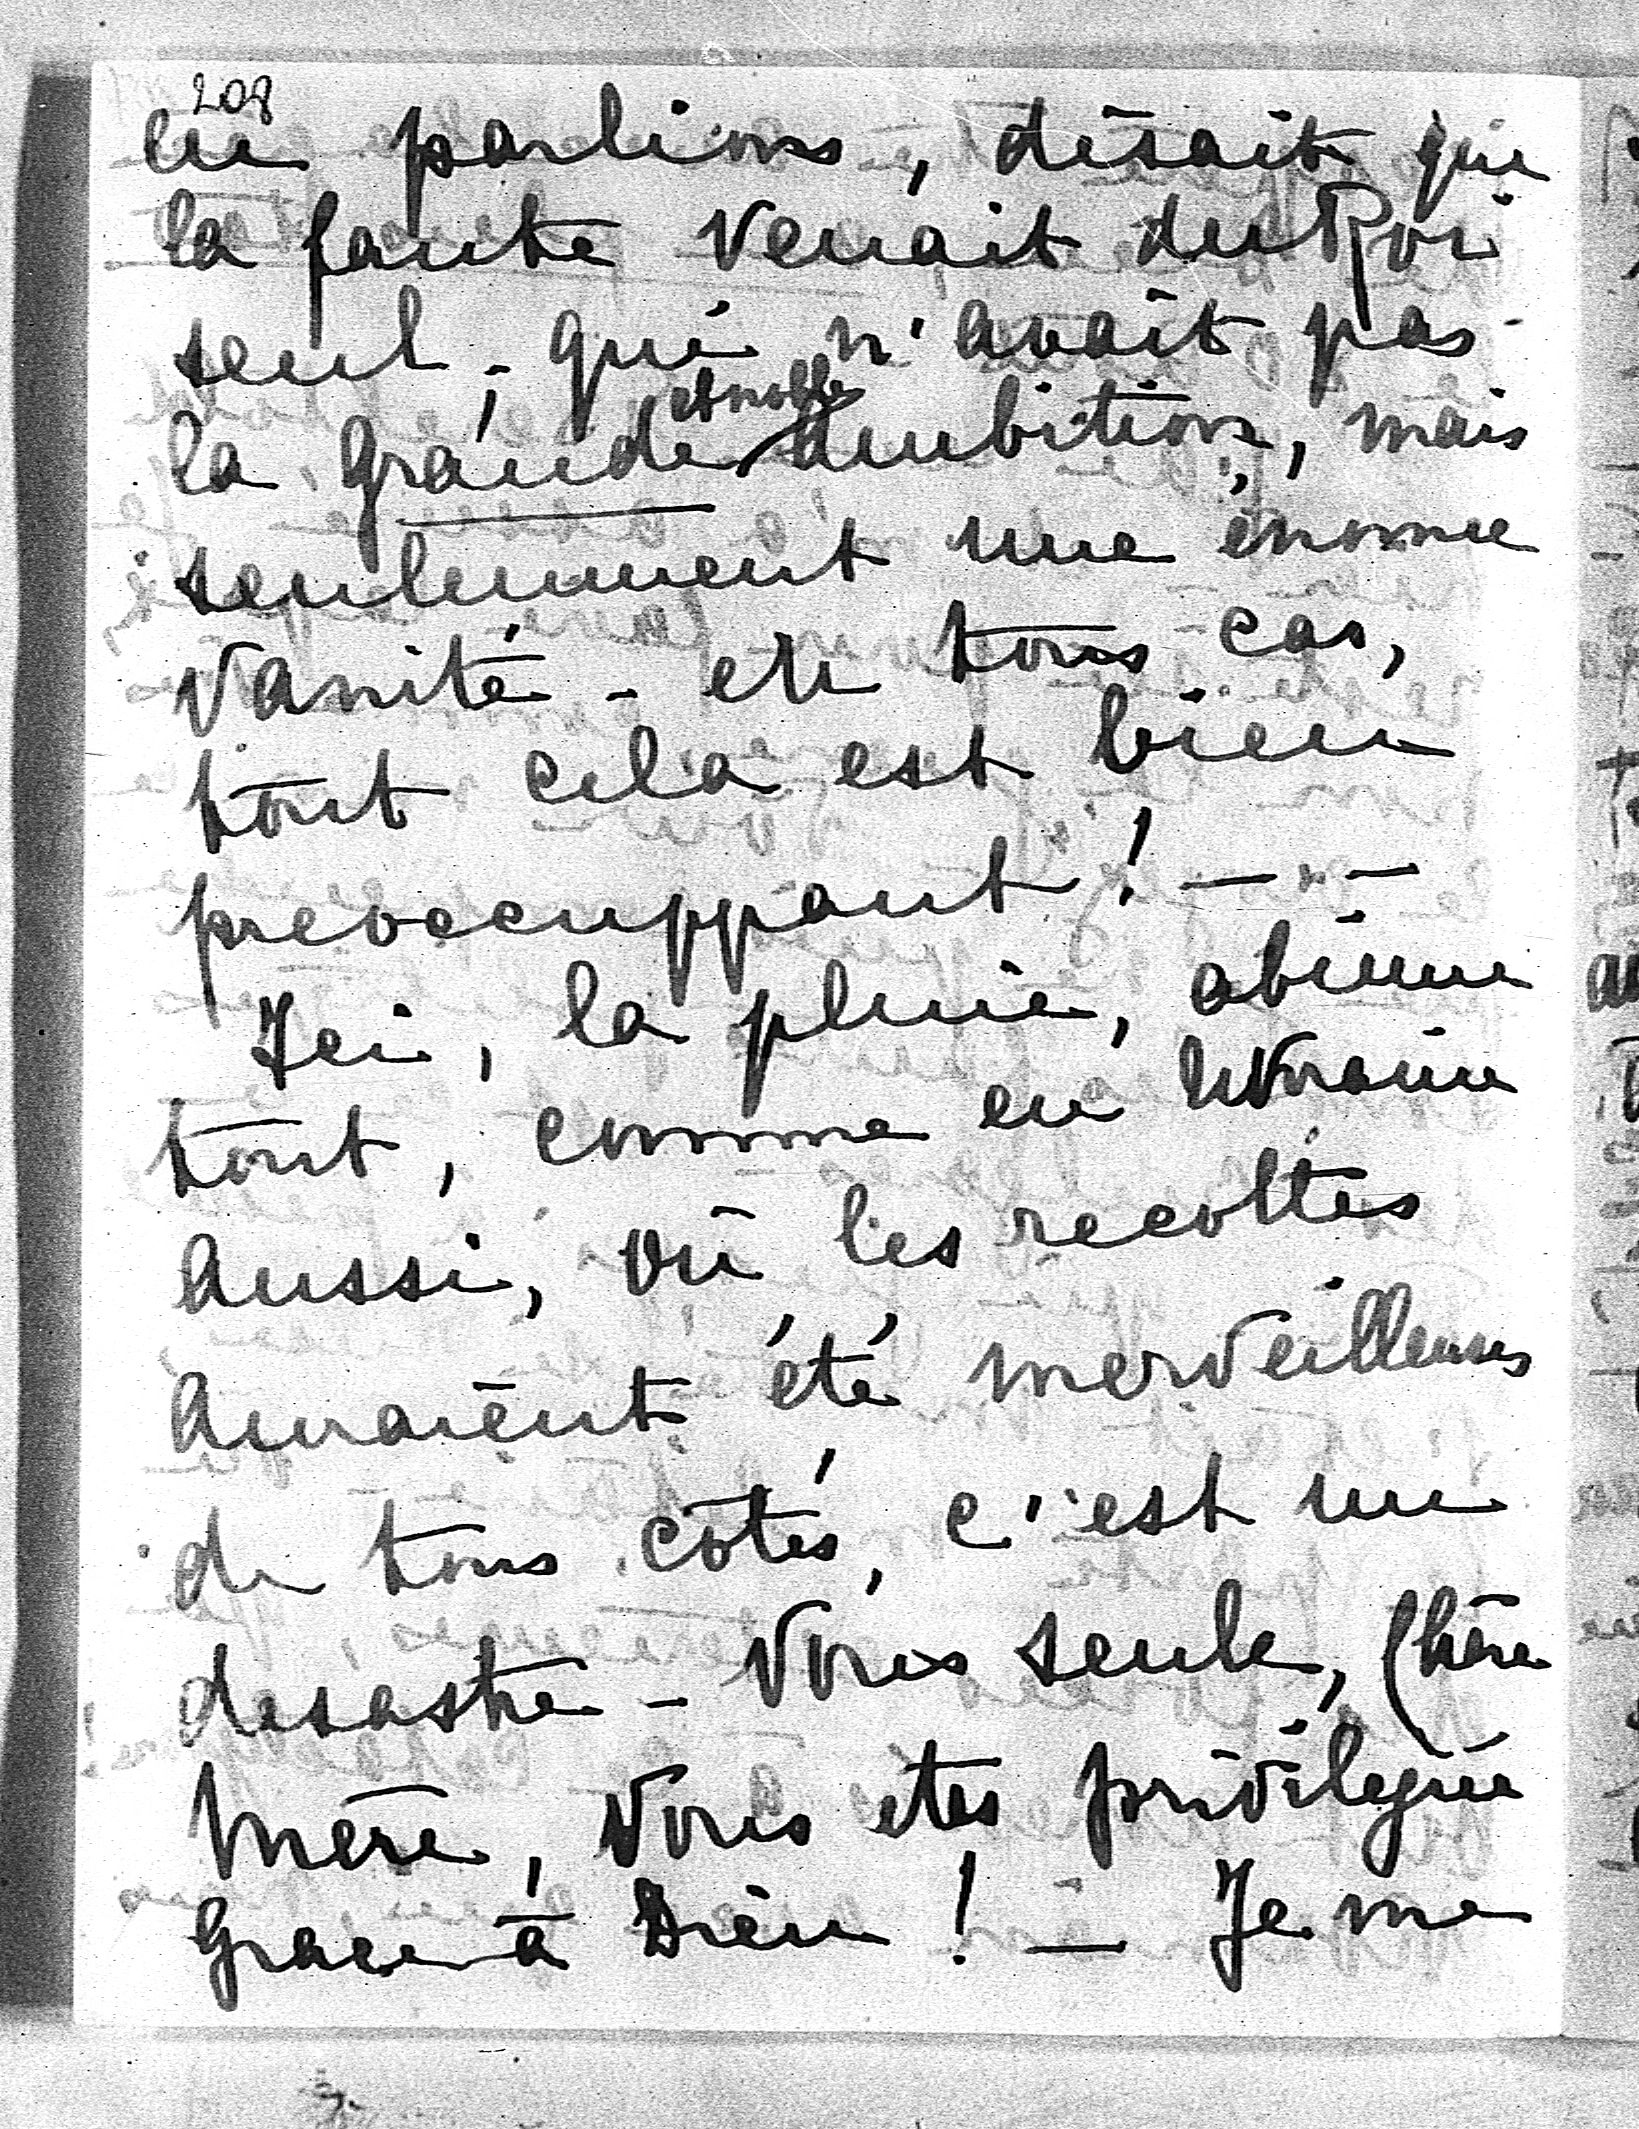 208
en parlions, disait que
la faute venait du Roi
seul, qui n'avait pas
la grande et noble ambition, mais
seulement une énorme
vanité - en tous cas,
tout cela est bien
preoccuppant ! — —
Ici, la pluie, abime
tout, comme en Ukraine
aussi, où les recoltes
auraient été merveilleuses
de tous côtés, c'est un
desastre - Vous seule, Chère
Mère, vous etes privilegiée
Grace à Dieu ! — Je me